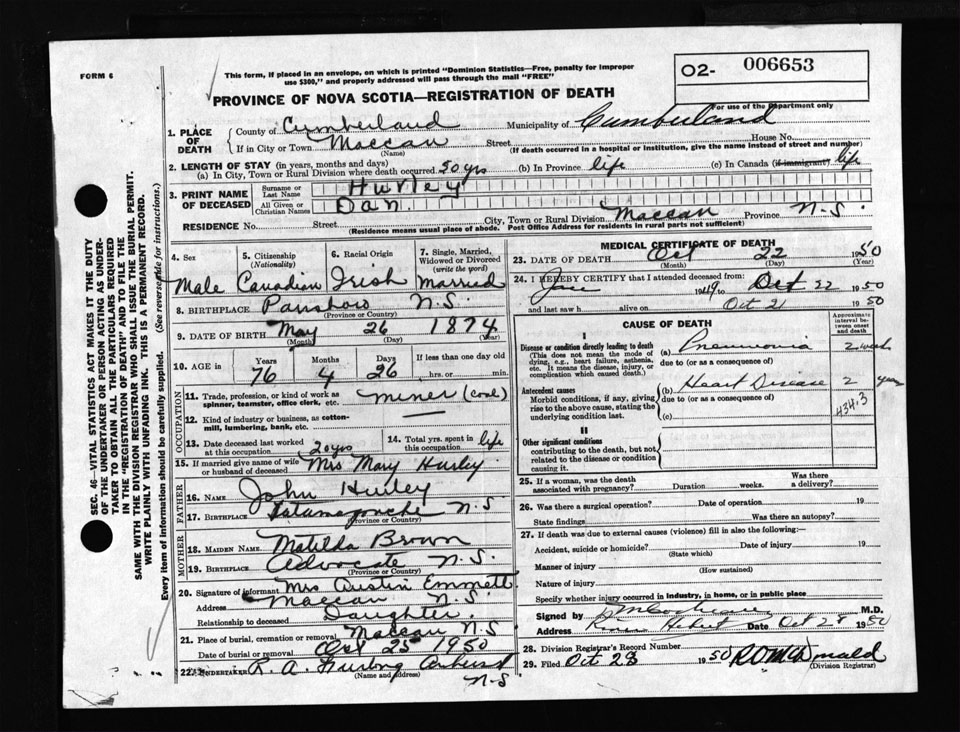 FORM 6
This form, if placed in an envelope, on which is printed "Dominion Statistics—Free, penalty for improper
use $300," and properly addressed will pass through the mail "FREE"
O2- 006653
For use of the Department only
PROVINCE OF NOVA SCOTIA—REGISTRATION OF DEATH
1. PLACE OF DEATH
County of Cumberland Municipality of Cumberland
If in City or Town Maccan Street House No.
(Name) (If death occurred in a hospital or institution, give the name instead of street and number)
2. LENGTH OF STAY (in years, months and days)
(a) In City, Town or Rural Division where death occurred 50 yrs (b) In Province life (c) In Canada (if immigrant) life
3. PRINT NAME OF DECEASED
Surname or Last Name Hurley
All Given or Christian Names Dan.
RESIDENCE No. Street City, Town or Rural Division Maccan Province N.S.
(Residence means usual place of abode. Post Office Address for residents in rural parts not sufficient)
4. Sex
Male
5. Citizenship
(Nationality)
Canadian
6. Racial Origin
Irish
7. Single, Married,
Widowed or Divorced
(write the word)
Married
8. BIRTHPLACE N.S.
(Province or Country)
9. DATE OF BIRTH May 26 1874
(Month) (Day) (Year)
10. AGE in Years Months Days If less than one day old
76 4 26 hrs. or min.
OCCUPATION
11. Trade, profession, or kind of work as
spinner, teamster, office clerk, etc. miner (coal)
12. Kind of industry or business, as cotton-
mill, lumbering, bank, etc.
13. Date deceased last worked
at this occupation 20 yrs
14. Total yrs. spent in
this occupation life
15. If married give name of wife
or husband of deceased Mrs Mary Hurley
FATHER
16. NAME John Hurley
17. BIRTHPLACE Tatamagouche N.S
(Province or Country)
MOTHER
18. MAIDEN NAME Matilda Brown
19. BIRTHPLACE Advocate N.S.
(Province or Country)
20. Signature of informant Mrs Austin Emmett
Address Maccan N.S.
Relationship to deceased Daughter
21. Place of burial, cremation or removal Maccan N.S
Date of burial or removal Oct 25 1950
22. UNDERTAKER R. A. Furlong Amherst
(Name and address) N-S
MEDICAL CERTIFICATE OF DEATH
23. DATE OF DEATH Oct 22 1950
(Month) (Day) (Year)
24. I HEREBY CERTIFY that I attended deceased from:
1949 to Oct 22 1950
and last saw h alive on Oct 21 1950
CAUSE OF DEATH
Approximate
interval be-
tween onset
and death
I
Disease or condition directly leading to death
(This does not mean the mode of
dying, e.g., heart failure, asthenia,
etc. It means the disease, injury, or
complication which caused death.)
(a) Pneumonia 2 weeks
due to (or as a consequence of)
Antecedent causes
Morbid conditions, if any, giving
rise to the above cause, stating the
underlying condition last.
(b) Heart Disease 2 years
due to (or as a consequence of)
(c)
434.3
II
Other significant conditions
contributing to the death, but not
related to the disease or condition
causing it.
25. If a woman, was the death
associated with pregnancy? Duration weeks. Was there
a delivery?
26. Was there a surgical operation? Date of operation 19
State findings Was there an autopsy?
27. If death was due to external causes (violence) fill in also the following:—
Accident, suicide or homicide? Date of injury 19
(State which)
Manner of injury
(How sustained)
Nature of injury
Specify whether injury occurred in industry, in home, or in public place
Signed by M.D.
Address River Hebert Date Oct 28 1950
28. Division Registrar's Record Number
29. Filed Oct 28 1950
(Division Registrar)
SEC. 46—VITAL STATISTICS ACT MAKES IT THE DUTY
OF THE UNDERTAKER OR PERSON ACTING AS UNDER-
TAKER TO OBTAIN ALL THE PARTICULARS REQUIRED
IN THE "REGISTRATION OF DEATH" AND TO FILE THE
SAME WITH THE DIVISION REGISTRAR WHO SHALL ISSUE THE BURIAL PERMIT.
WRITE PLAINLY WITH UNFADING INK. THIS IS A PERMANENT RECORD.
Every item of information should be carefully supplied. (See reverse side for instructions).